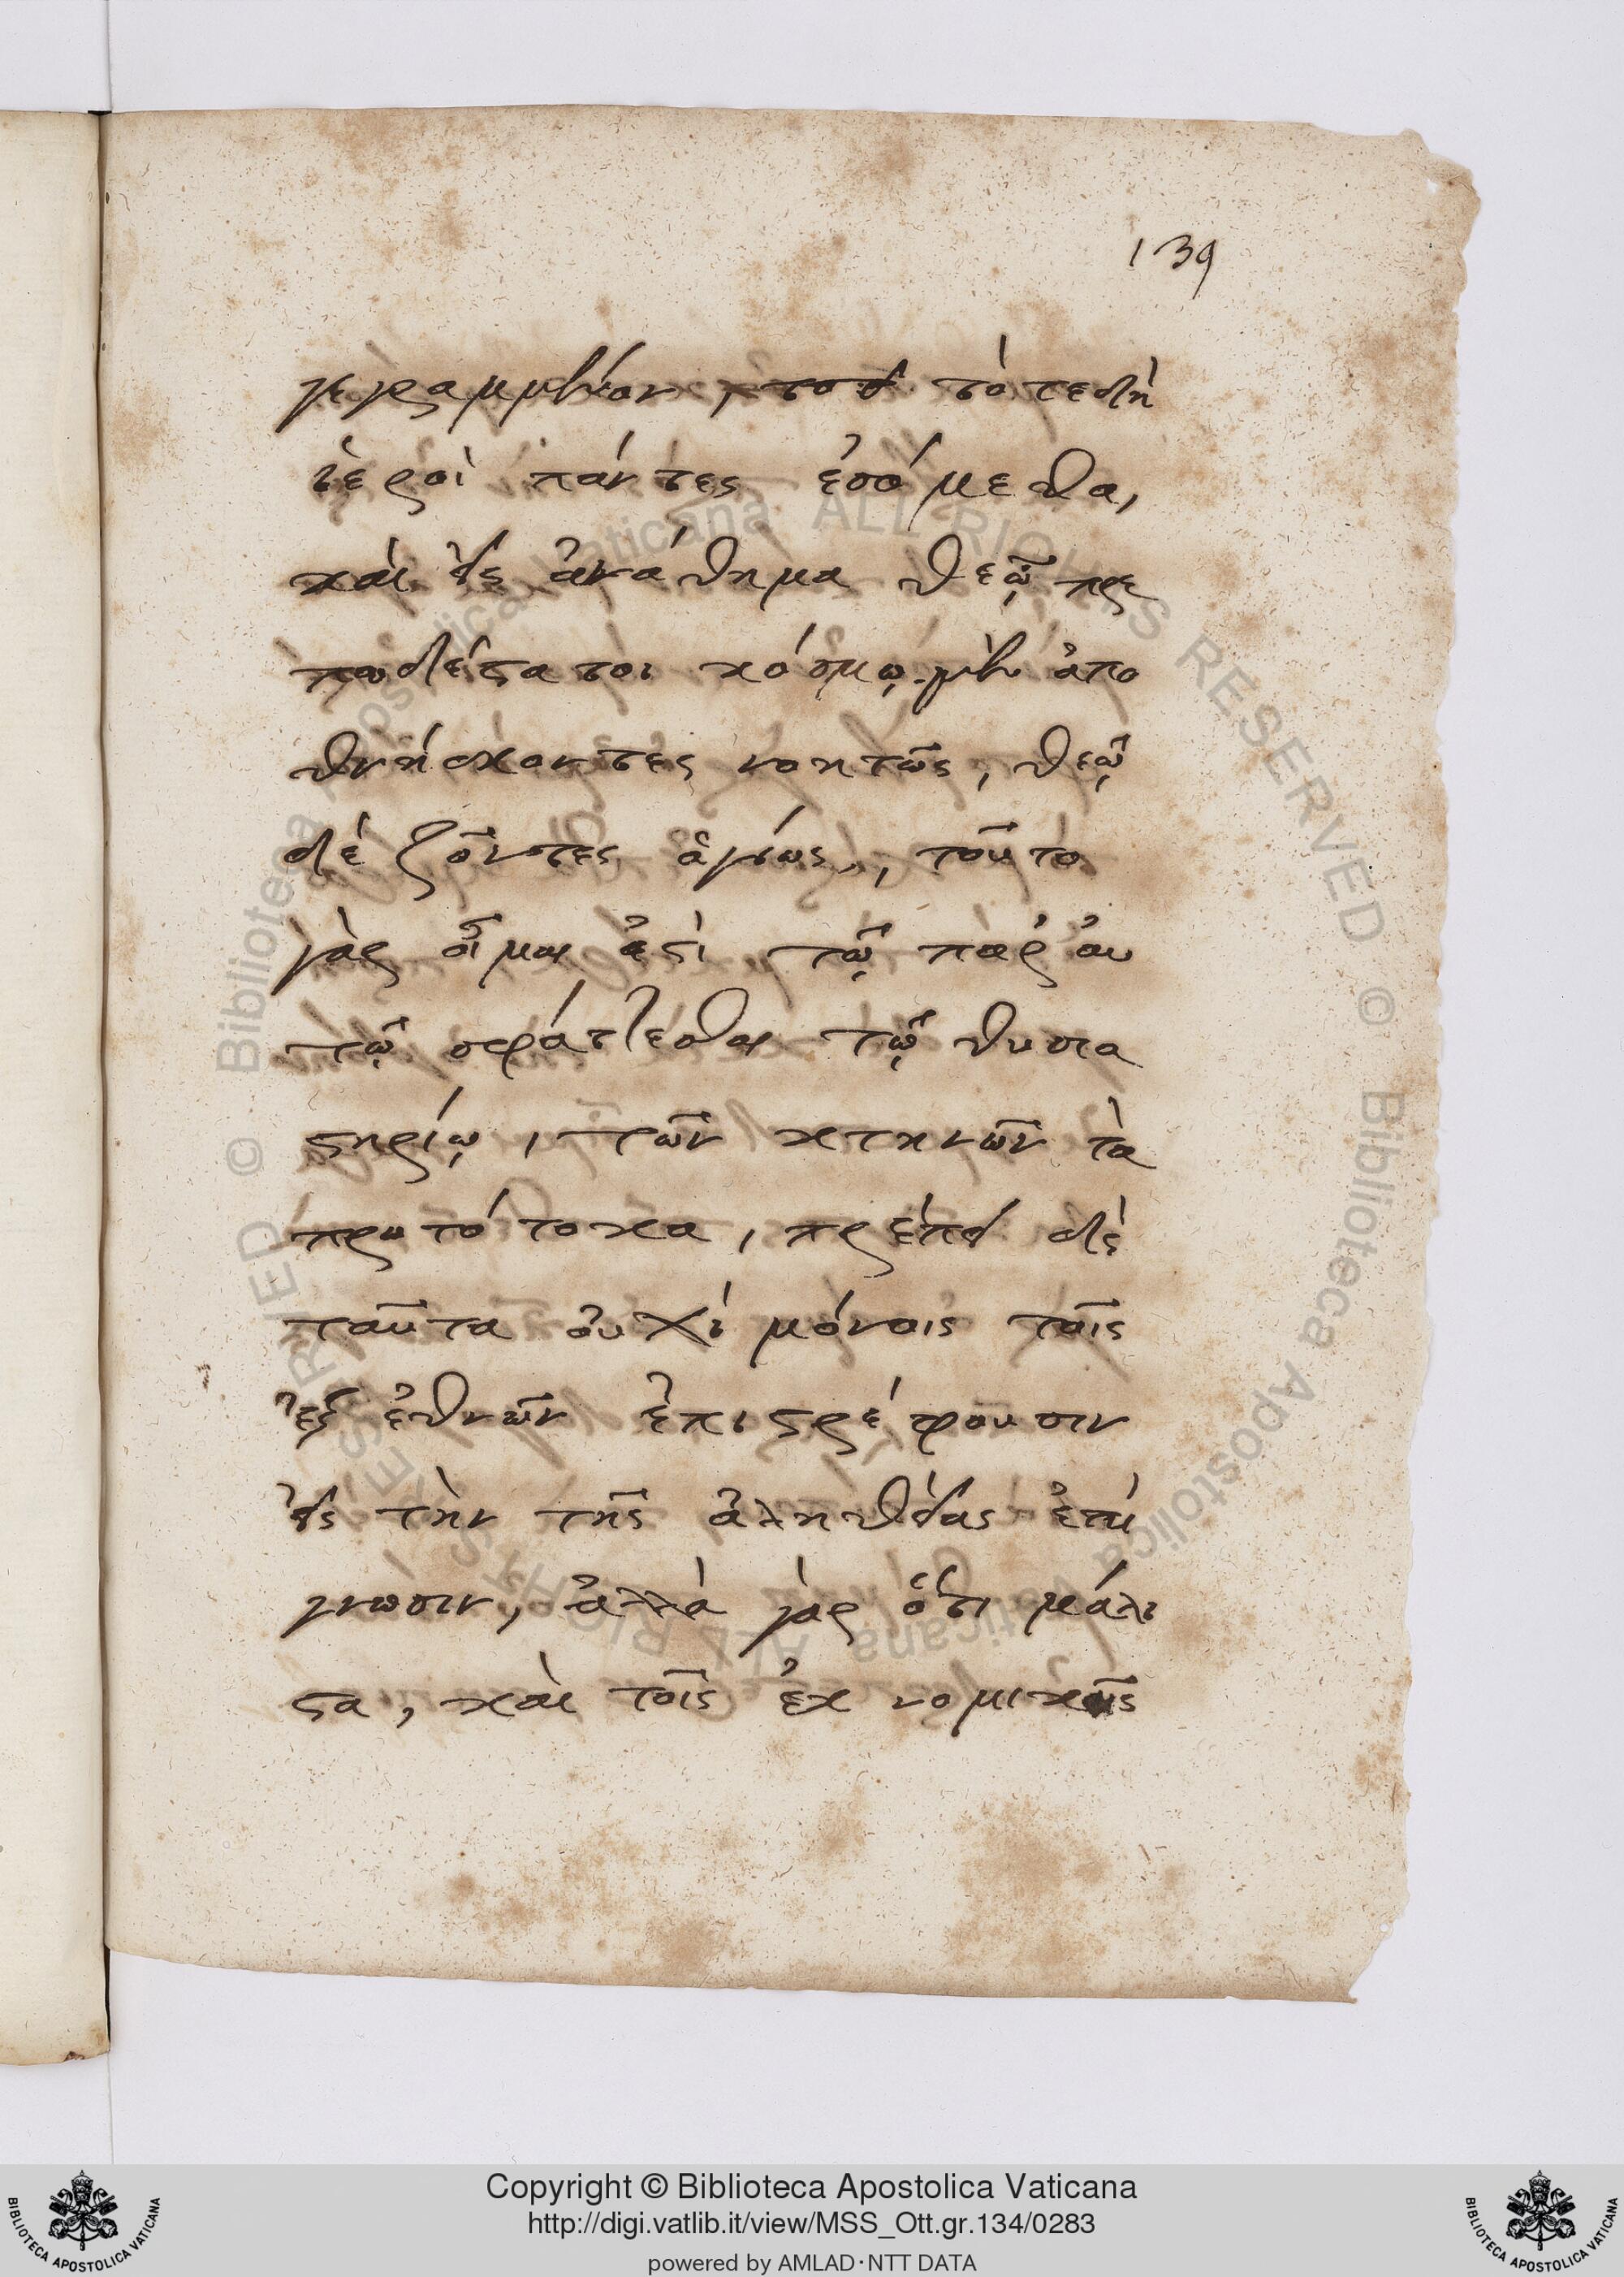 139
γεγραμμένον, τοτ τότε δὴ
ἱεροὶ πάντες ἐσόμεθα,
καὶ εἰς ἀνάθημα θεῷ πρε
πωδέστατοι κόσμῳ μὲν ἀπο
θνήσκοντες νοητῶς, θεῷ
δὲ ζῶντες ἁγίως, τοῦτο
γὰρ οἶμαι ἐστὶ τῷ παρ' αυ
τῷ σφάττεσθαι τῷ θυσια
στηρίῳ, τῶν κτηνῶν τὰ
πρωτότοκα, πρέπει δὲ
ταῦτα οὐχὶ μόνοις τοῖς
ἐξ ἐθνῶν ἐπιστρέφουσιν
εἰς τὴν τῆς ἀληθείας ἐπί
γνωσιν, ἀλλὰ γὰρ ὅτι μάλι
στα, καὶ τοῖς ἐκ νομικῆς
Copyright © Biblioteca Apostolica Vaticana
http://digi.vatlib.it/view/MSS_Ott.gr.134/0283
powered by AMLAD·NTT DATA
BIBLIOTECA APOSTOLICA VATICANA
BIBLIOTECA APOSTOLICA VATICANA
© Biblioteca Apostolica Vaticana ALL RIGHTS RESERVED
© Biblioteca Apostolica Vaticana ALL RIGHTS RESERVED